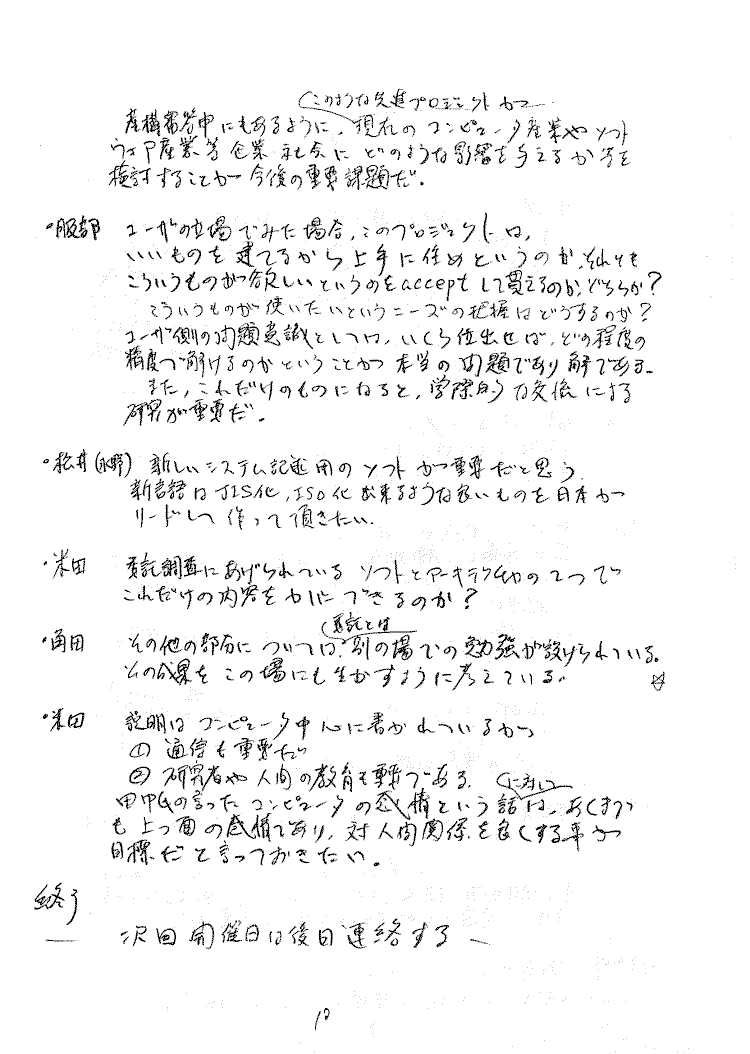 このような先進プロジェクトが
産構審答申にもあるように、現在のコンピュータ産業やソフト
ウェア産業等企業社会にどのような影響を与えるか等を
検討することが今後の重要課題だ。
・服部 ユーザの立場でみた場合、このプロジェクトは、
いいものを建てるから上手に住めというのか、それとも
こういうものが欲しいというのをacceptして貰えるのか、どちらか?
こういうものが使いたいというニーズの把握はどうするのか?
ユーザ側の問題意識としては、いくら位出せば、どの程度の
精度で解けるのかということが本当の問題であり解である。
また、これだけのものになると、学際的な交流による
研究が重要だ。
・松井(水野) 新しいシステム記述用のソフトが重要だと思う
新言語はJIS化、ISO化出来るような良いものを日本が
リードして作って頂きたい。
・米田 委託調査にあげられているソフトとアーキテクチャの2つで
これだけの内容をカバーできるのか?
委託とは
・角田 その他の部分については、別の場での勉強が設けられている。
その成果をこの場にも生かすように考えている。
・米田 説明はコンピュータ中心に書かれているが
① 通信も重要だ
② 研究者や人間の教育も重要である。
に対し
田中氏の言ったコンピュータの感情という話は、あくまで
も上っ面の感情であり、対人間関係を良くする事が
目標だと言っておきたい。
終了
― 次回開催日は後日連絡する ―